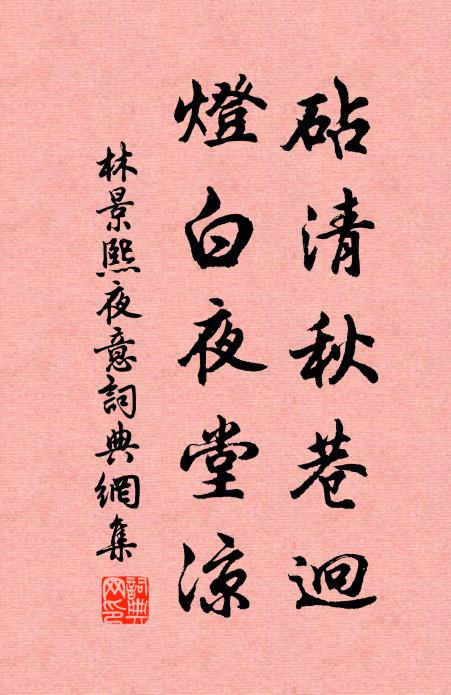 砧清秋巷迴
燈白夜堂涼
林景熙夜意詞典網集
詞典網印